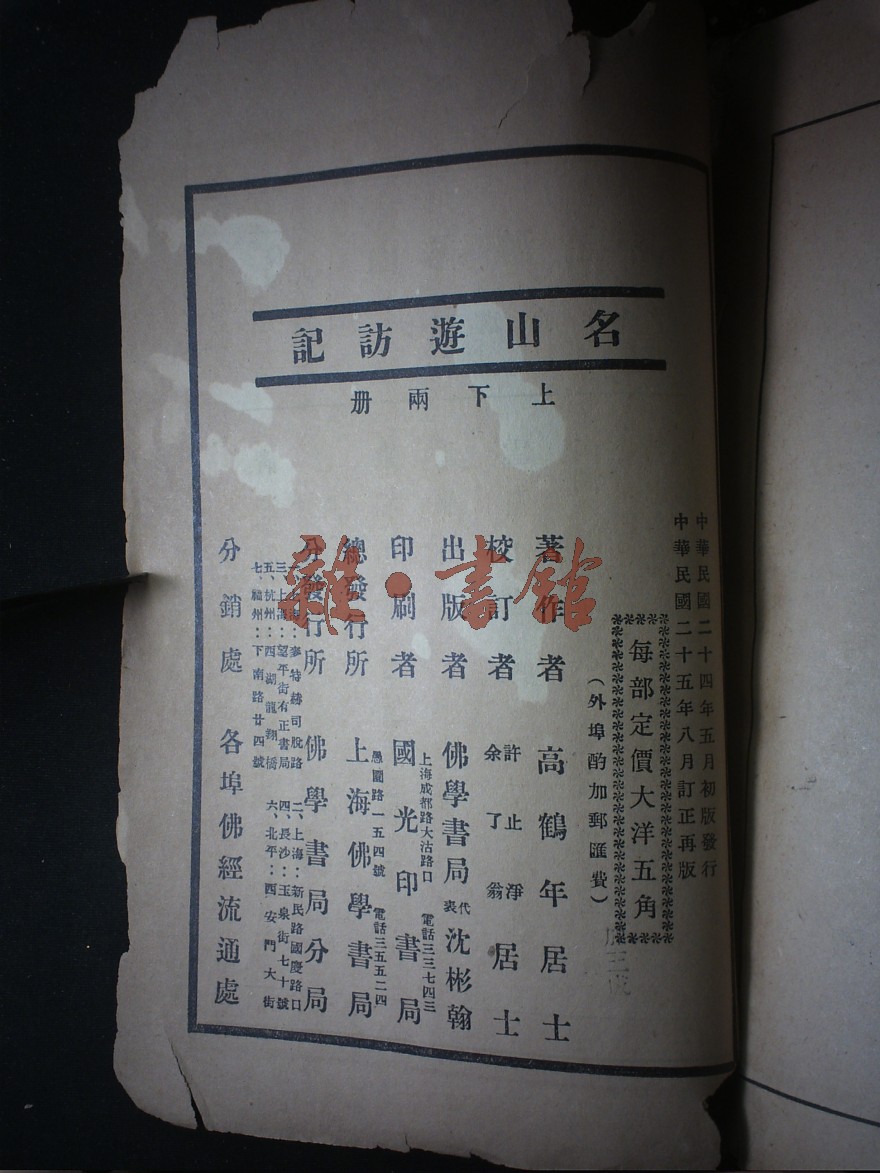 名山遊訪記
上下兩册
中華民國二十四年五月初版發行
中華民國二十五年八月訂正再版
每部定價大洋五角
(外埠酌加郵匯費)
著作者 高鶴年居士
校訂者 許止淨 余了翁 居士
出版者 佛學書局 代表 沈彬翰
上海成都路大沽路口 電話三三七四三
印刷者 國光印書局
愚園路一五四號 電話三五五二四
總發行所 上海佛學書局
分發行所 佛學書局分局
麥特赫司脫路 二、上海:新民路國慶路口
三、上海:望平街有正書局 四、長沙:玉泉街七十號
五、杭州:西湖龍翔橋 六、北平:西安門大街
七、福州:下南路廿四號
分銷處 各埠佛經流通處
雜·書館